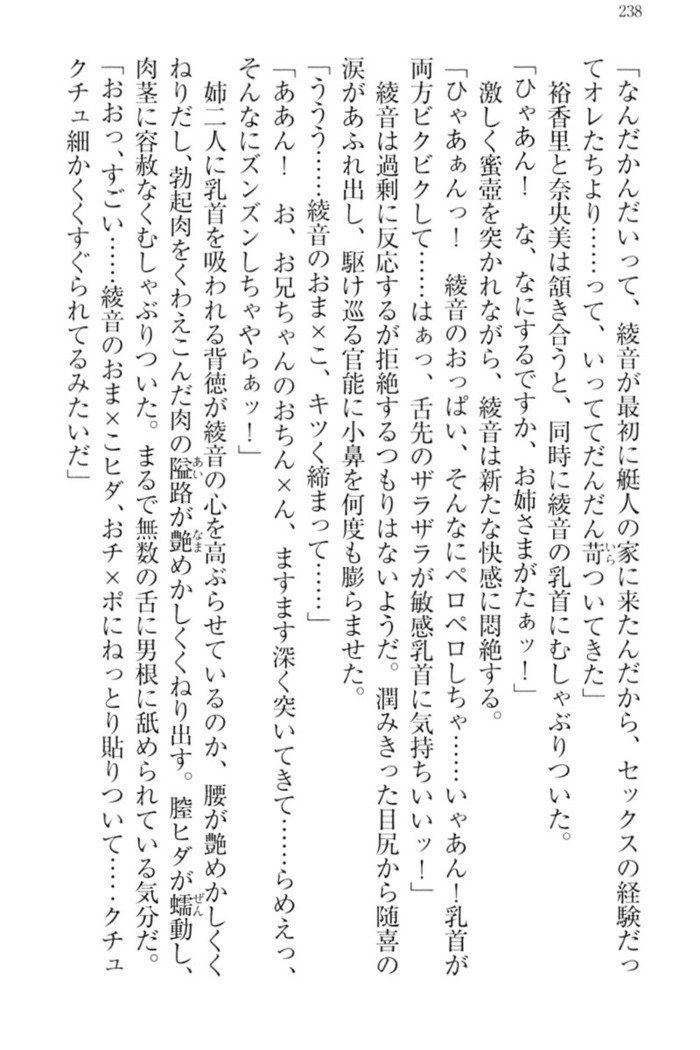 238
「なんだかんだいって、綾音が最初に艇人の家に来たんだから、セックスの経験だっ
てオレたちより……って、いっててだんだん苛ついてきた」
裕香里と奈央美は頷き合うと、同時に綾音の乳首にむしゃぶりついた。
「ひゃあん！　な、なにするですか、お姉さまがたぁッ！」
激しく蜜壺を突かれながら、綾音は新たな快感に悶絶する。
「ひゃあぁんっ！　綾音のおっぱい、そんなにペロペロしちゃ……いゃあん！乳首が
両方ビクビクして……はぁっ、舌先のザラザラが敏感乳首に気持ちいいッ！」
綾音は過剰に反応するが拒絶するつもりはないようだ。潤みきった目尻から随喜の
涙があふれ出し、駆け巡る官能に小鼻を何度も膨らませた。
「ううう……綾音のおま×こ、キツく締まって……」
「ああん！　お、お兄ちゃんのおちん×ん、ますます深く突いてきて……らめえっ、
そんなにズンズンしちゃやらぁッ！」
姉二人に乳首を吸われる背徳が綾音の心を高ぶらせているのか、腰が艶めかしくく
ねりだし、勃起肉をくわえこんだ肉の隘路が艶めかしくくねり出す。膣ヒダが蠕動し、
肉茎に容赦なくむしゃぶりついた。まるで無数の舌に男根に舐められている気分だ。
「おおっ、すごい……綾音のおま×こヒダ、おチ×ポにねっとり貼りついて……クチュ
クチュ細かくくすぐられてるみたいだ」